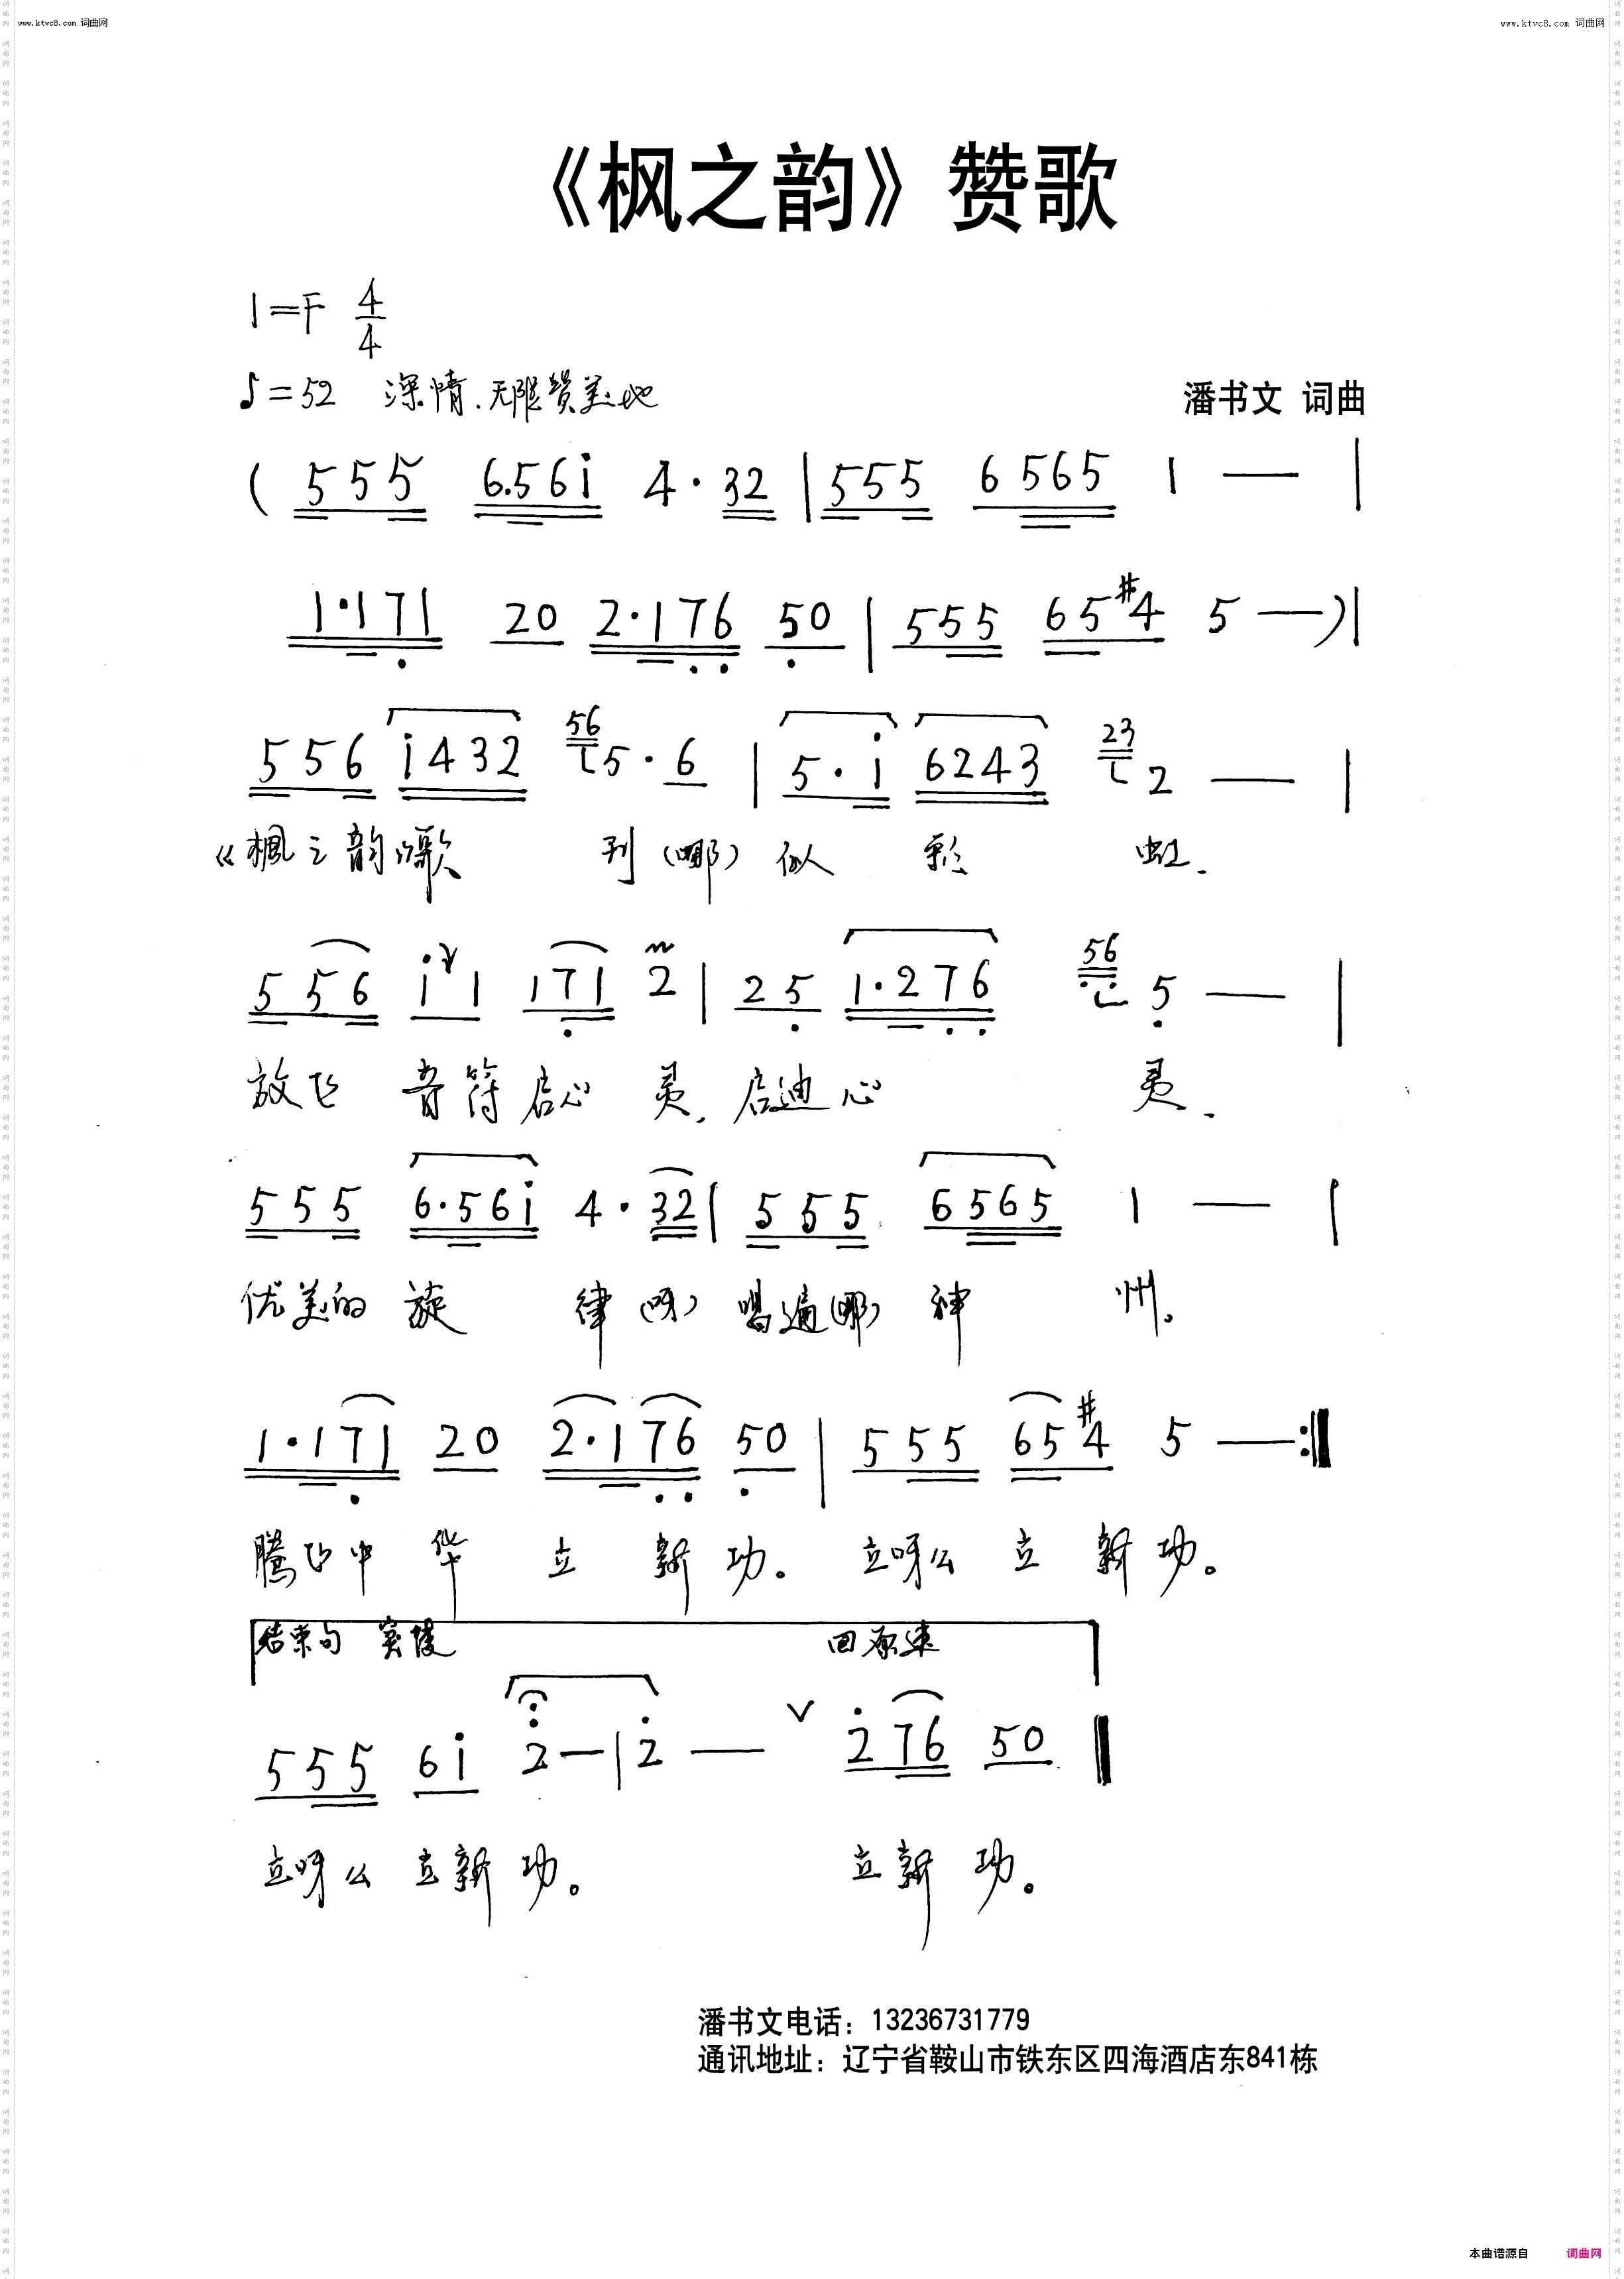 www.ktvc8.com 词曲网
www.ktvc8.com 词曲网
《枫之韵》赞歌
1=F 4/4
♪=52 深情、无限赞美地
潘书文 词曲
( 5 5 5 6.56i 4·32 | 555 6565 1 — |
1·171 20 2·176 50 | 555 65#4 5 — ) |
556 i432 56 5·6 | 5·i 6243 23 2 — |
《枫之韵》歌 刊(哪) 似 彩 虹、
5 56 i 1 171 2 | 25 1·276 56 5 — |
放飞 音符启心 灵、启迪心 灵、
555 6·56i 4·32 | 555 6565 1 — |
优美的 旋 律(呀) 唱遍(哪) 神 州。
1·171 20 2·176 50 | 555 65#4 5 — :‖
腾飞中 华 立 新 功。 立呀么 立 新 功。
结束句 突慢 回原速
555 6i 2 — | 2 — ∨ 276 50 ‖
立呀么 立新 功。 立新 功。
潘书文电话：13236731779
通讯地址：辽宁省鞍山市铁东区四海酒店东841栋
本曲谱源自 词曲网